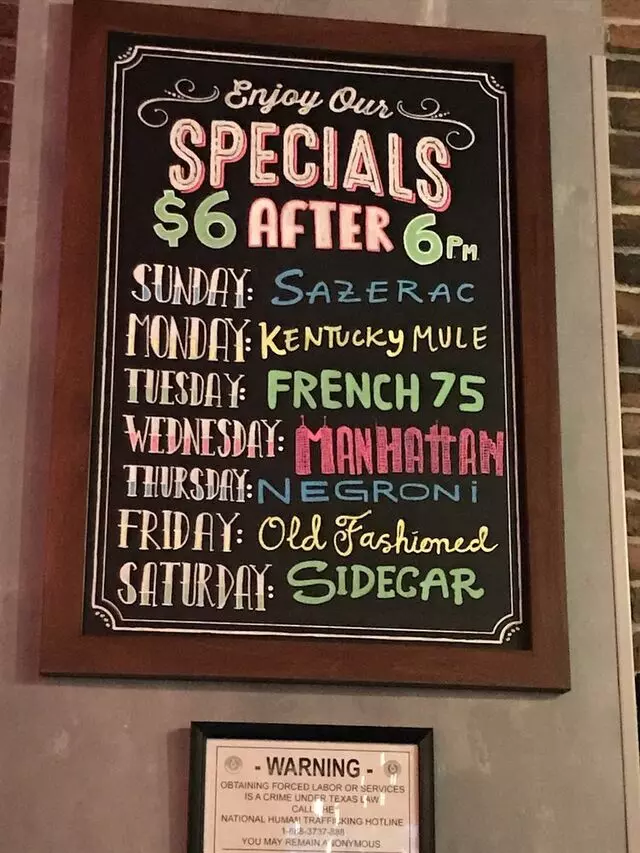 Enjoy Our
SPECIALS
$6 AFTER 6PM
SUNDAY: SAZERAC
MONDAY: KENTUCKY MULE
TUESDAY: FRENCH 75
WEDNESDAY: MANHATTAN
THURSDAY: NEGRONi
FRIDAY: Old Fashioned
SATURDAY: SIDECAR
- WARNING -
OBTAINING FORCED LABOR OR SERVICES
IS A CRIME UNDER TEXAS LAW
CALL THE
NATIONAL HUMAN TRAFFICKING HOTLINE
YOU MAY REMAIN ANONYMOUS